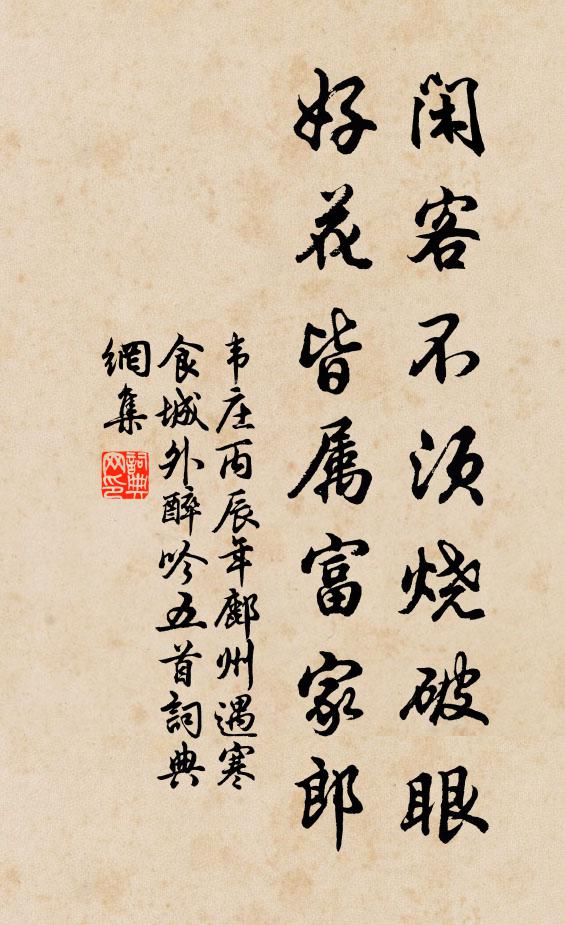 闲客不须烧破眼
好花皆属富家郎
韦庄丙辰年鄜州遇寒
食城外醉吟五首词典
網集
詞典
网印